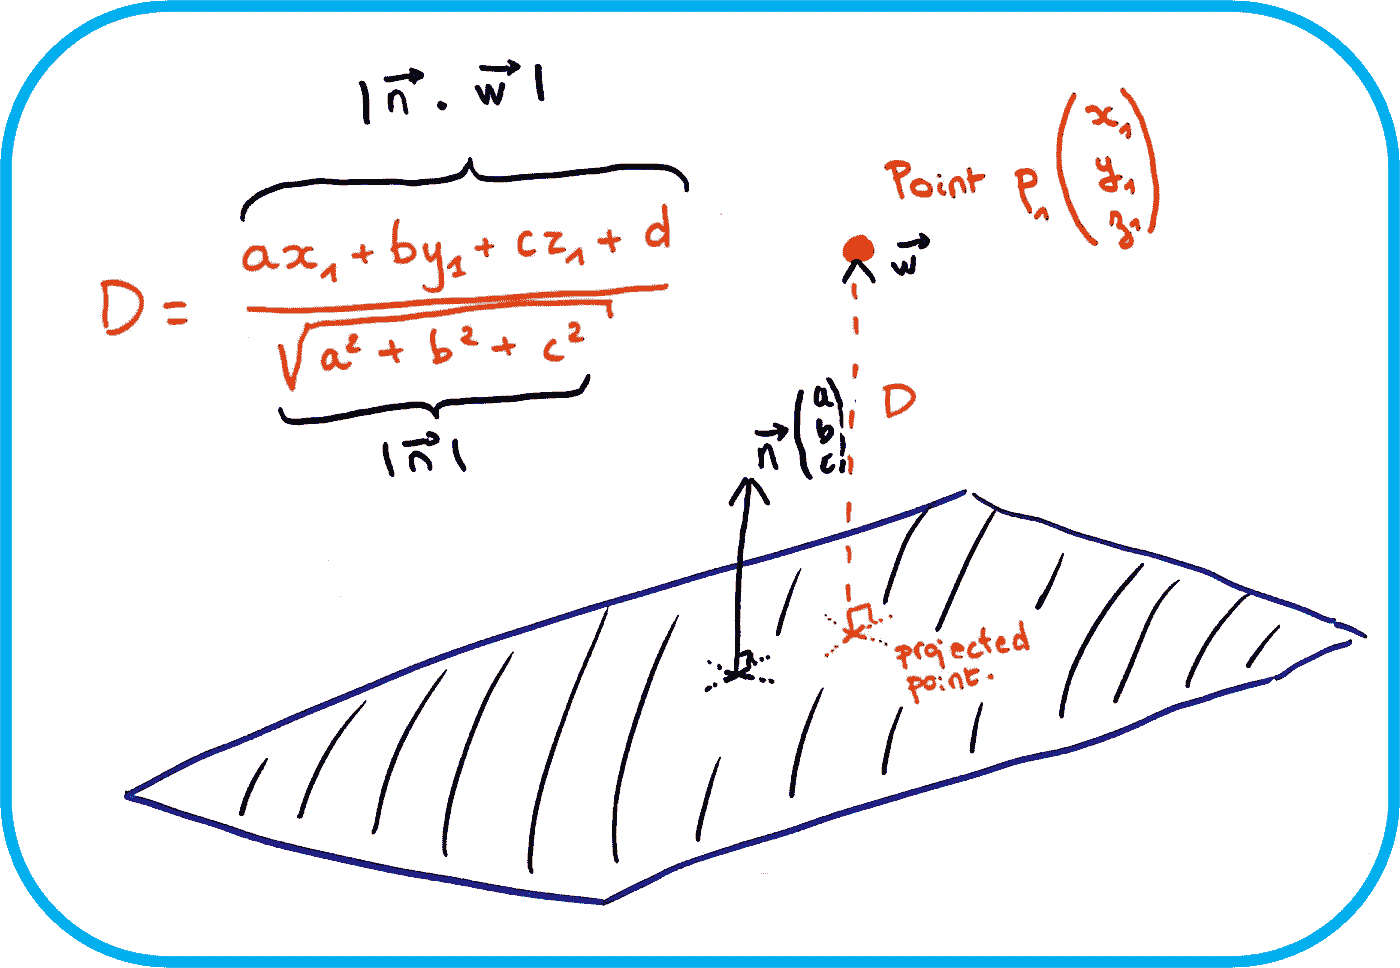 |n⃗ . w⃗|
D = (ax₁ + by₁ + cz₁ + d) / √(a² + b² + c²)
|n⃗|
Point P₁ (x₁
y₁
z₁)
w⃗
D
n⃗ (a
b
c)
projected
point.